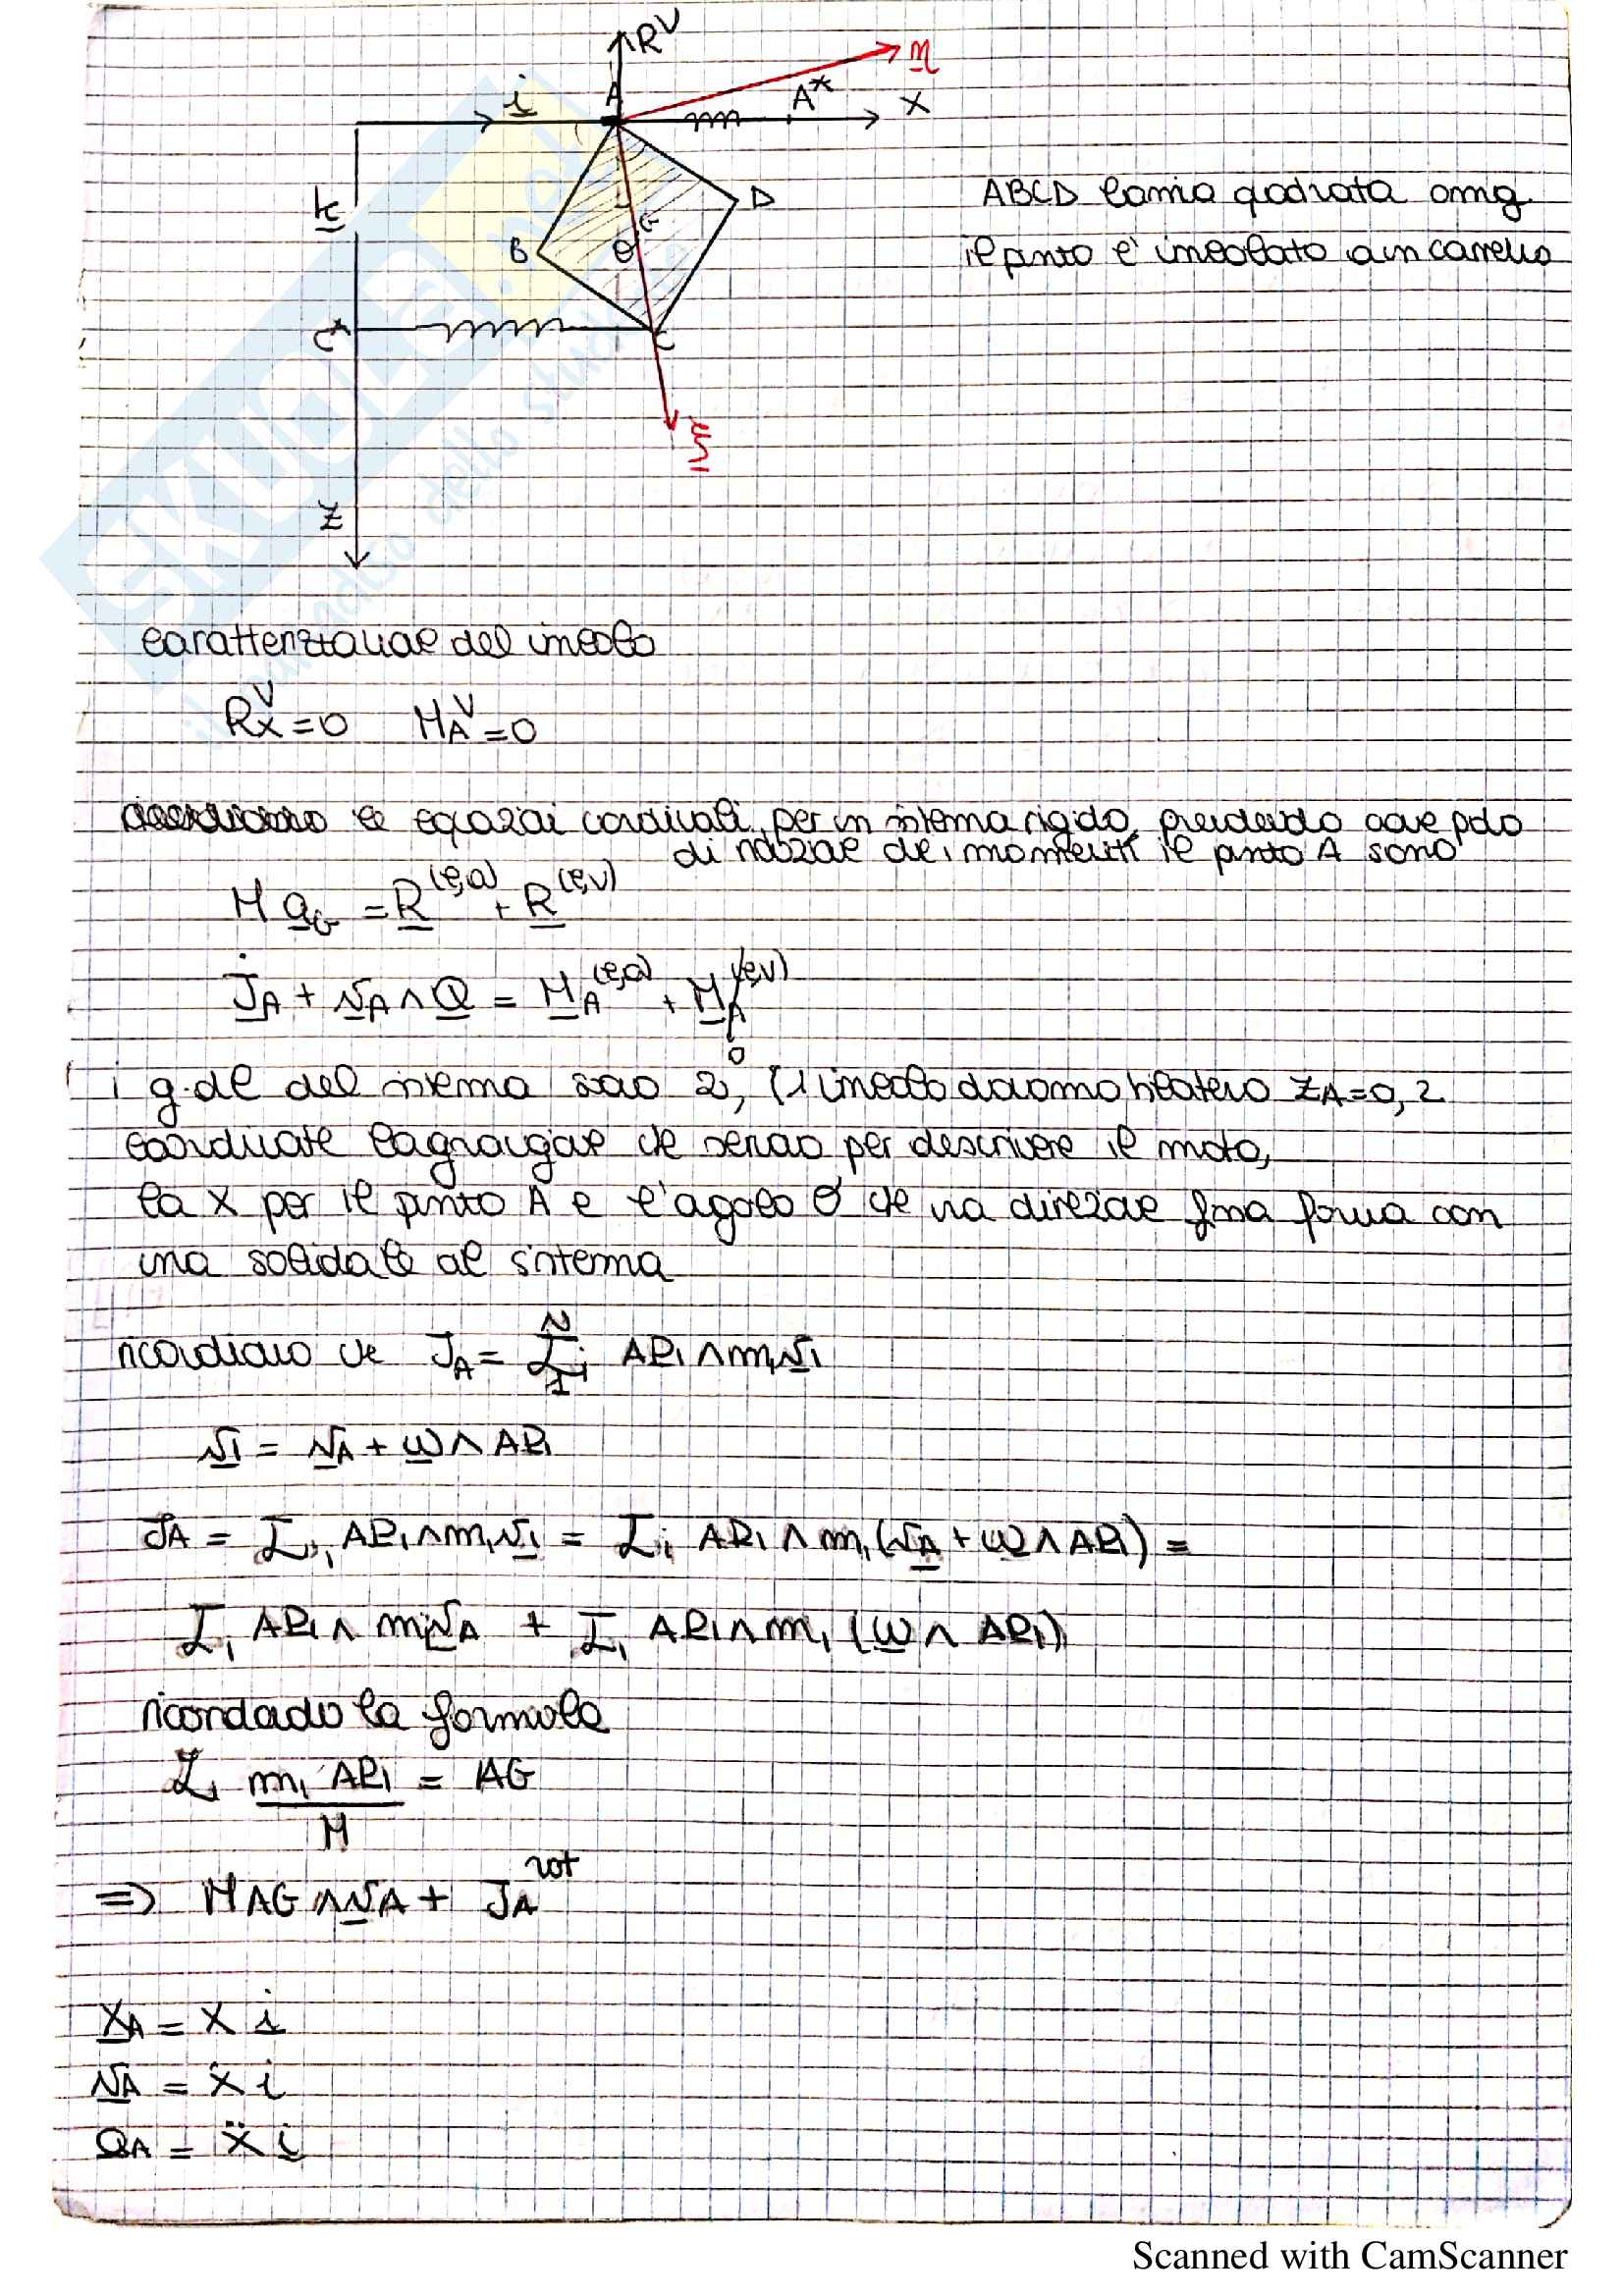 R^V
η
i
A
A*
X
k
D
G
B
θ
C*
C
ξ
Z
ABCD lamina quadrata omg
il punto è vincolato a un carrello
caratterizzazione del vincolo
R_X^V = 0 M_A^V = 0
le equazioni cardinali, per un sistema rigido, prendendo come polo
di riduzione dei momenti il punto A sono
M a_G = R^(e,a) + R^(e,v)
J̇_A + v_A ∧ Q = M_A^(e,a) + M_A^(e,v)
0
i g.dl del sistema sono 2, (1 vincolo olonomo bilatero Z_A = 0, 2
coordinate lagrangiane che servono per descrivere il moto,
la X per il punto A e l'angolo θ che una direzione fissa forma con
una solidale al sistema
ricordiamo che J_A = Σ_1^N i AP_i ∧ m_i v_i
v_i = v_A + ω ∧ AP_i
J_A = Σ_i AP_i ∧ m_i v_i = Σ_i AP_i ∧ m_i (v_A + ω ∧ AP_i) =
Σ_i AP_i ∧ m_i v_A + Σ_i AP_i ∧ m_i (ω ∧ AP_i)
ricordando la formula
Σ_i m_i AP_i / M = AG
=> M AG ∧ v_A + J_A^rot
X_A = X i
v_A = ẋ i
a_A = ẍ i
SKUOLA.net
Scanned with CamScanner